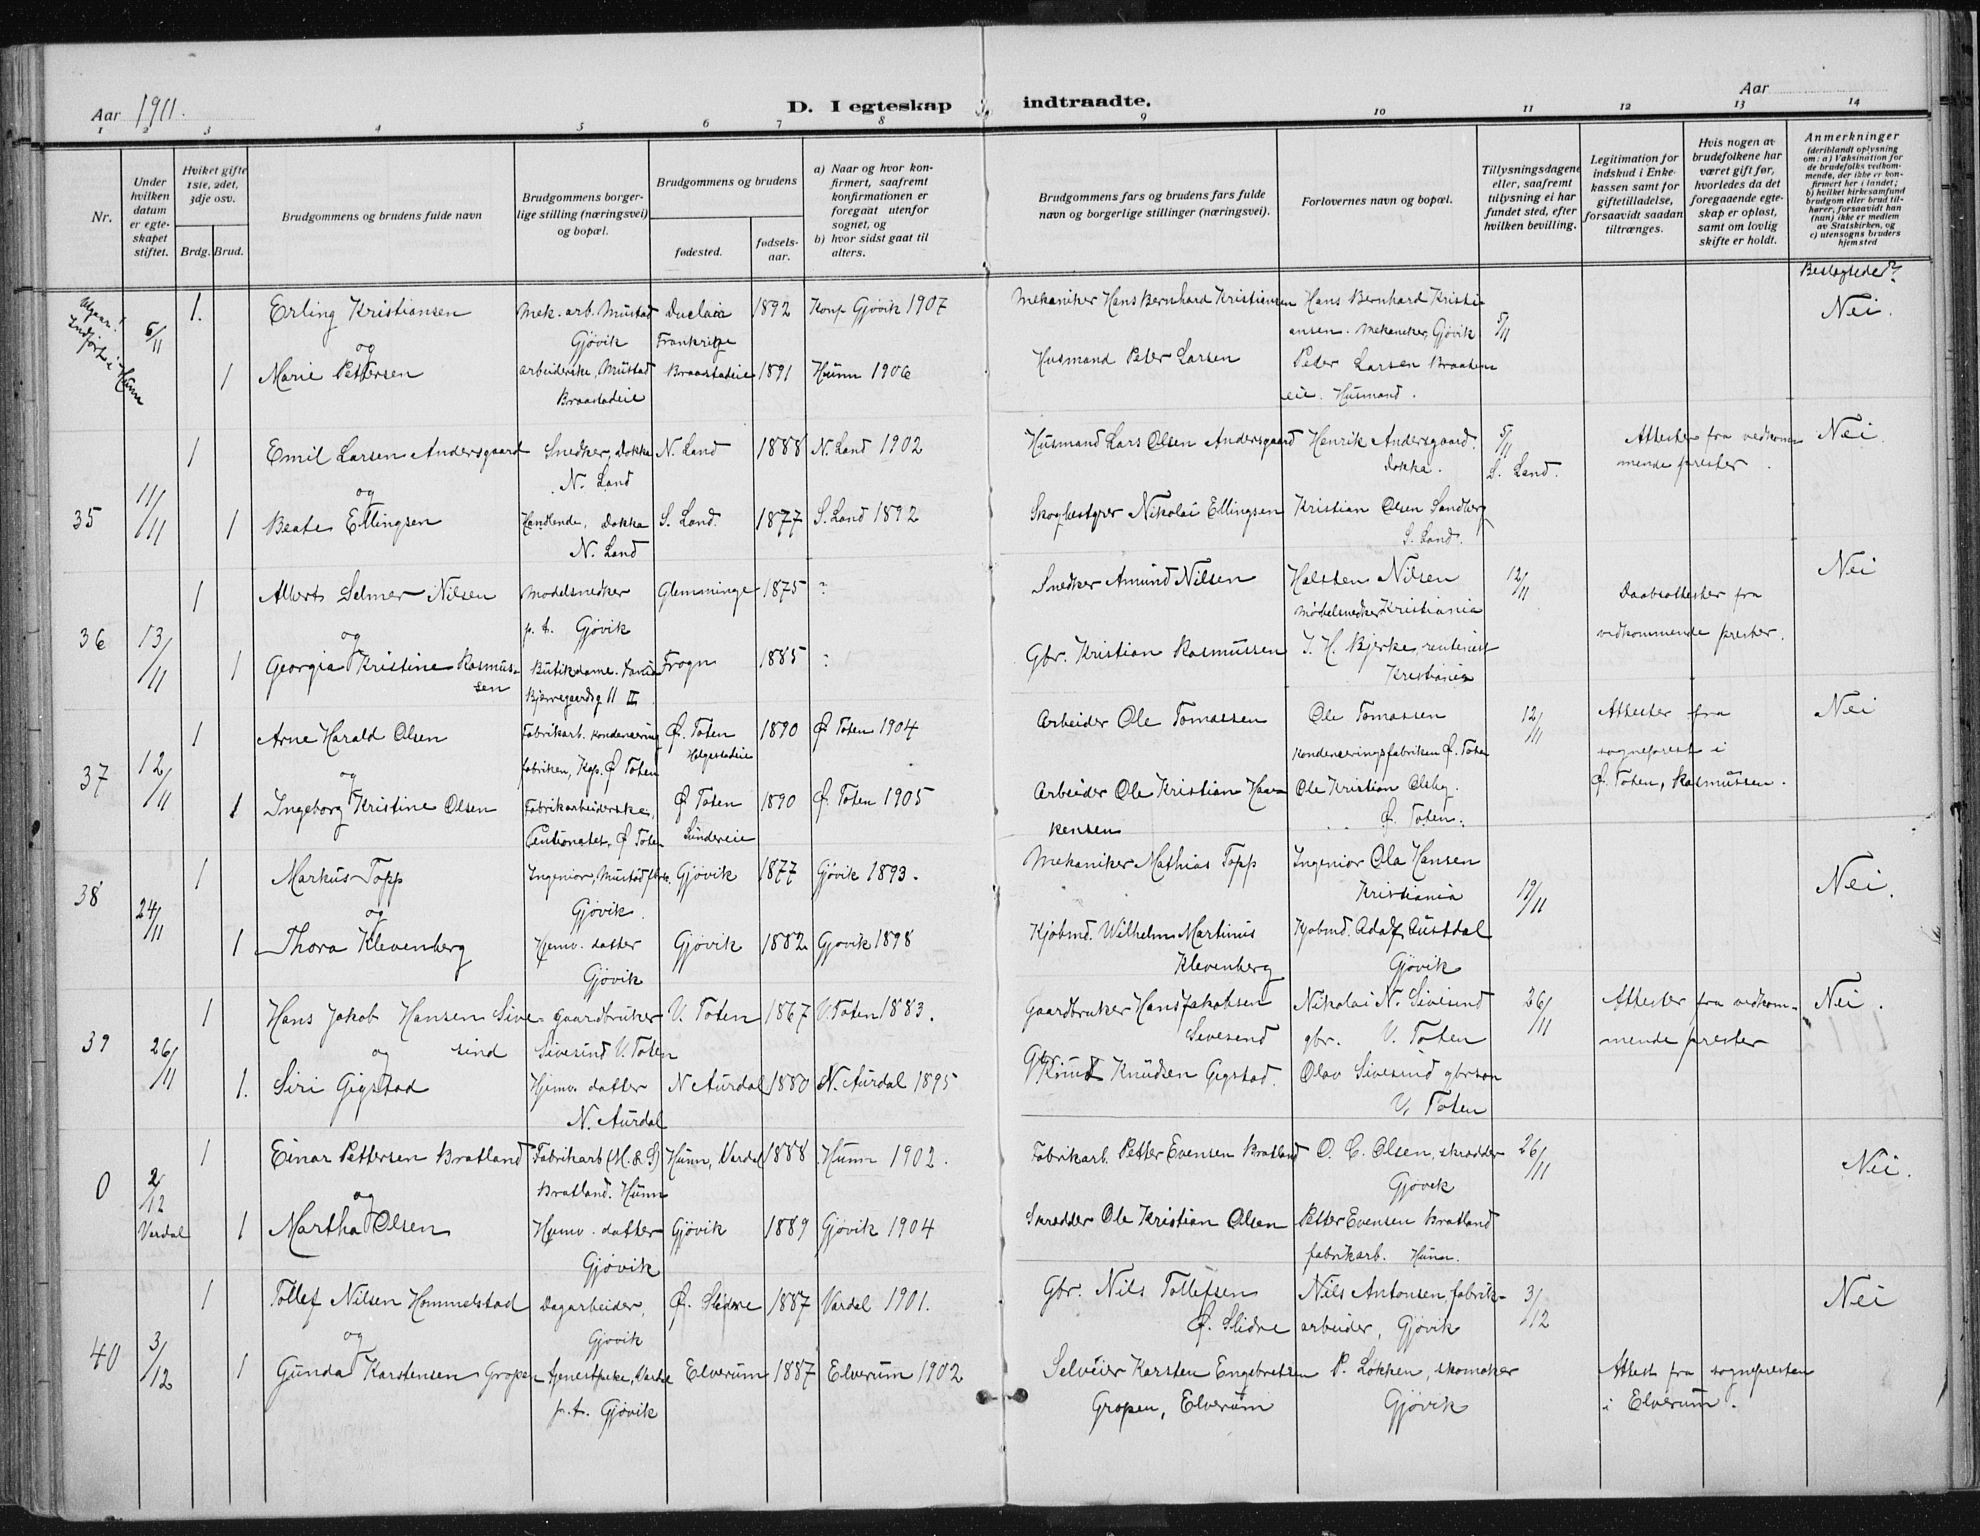 Aar 1911.
D. I egteskap indtraadte.
Aar
1 2 3 4 5 6 7 8 9 10 11 12 13 14
Nr.
Under hvilken datum er egteskapet stiftet.
Hvilket gifte 1ste, 2det, 3dje osv.
Brdg. Brud.
Brudgommens og brudens fulde navn
Brudgommens borgerlige stilling (næringsvei) og bopæl.
Brudgommens og brudens
fødested.
fødselsaar.
a) Naar og hvor konfirmert, saafremt konfirmationen er foregaat utenfor sognet, og
b) hvor sidst gaat til alters.
Brudgommens fars og brudens fars fulde navn og borgerlige stillinger (næringsvei).
Forlovernes navn og bopæl.
Tillysningsdagene eller, saafremt tillysning ei har fundet sted, efter hvilken bevilling.
Legitimation for indskud i Enkekassen samt for giftetilladelse, forsaavidt saadan tiltrænges.
Hvis nogen av brudefolkene har været gift før, hvorledes da det foregaaende egteskap er opløst, samt om lovlig skifte er holdt.
Anmerkninger
(deriblandt oplysning om: a) Vaksination for de brudefolks vedkommende, der ikke er konfirmert her i landet; b) hvilket kirkesamfund brudgom eller brud tilhører, forsaavidt han (hun) ikke er medlem av Statskirken, og c) utensogns bruders hjemsted
Beslegtede?
Utgaar! Indført i Hunn
6/11 1. Erling Kristiansen Mek. arb. Mustad Duclair 1892 Konf Gjøvik 1907 Mekaniker Hans Bernhard Kristiansen Hans Bernhard Kristi- 5/11 Nei.
og Gjøvik Frankrige ansen. Mekaniker, Gjøvik
1 Marie Pettersen arbeiderske, Mustad Braastadeie 1891 Hunn 1906 Husmand Peter Larsen Peter Larsen Braaten
Braastadeie eie. Husmand.
35 11/11 1 Emil Larsen Andersgaard Snedker, Dokka N. Land 1888 N. Land 1902 Husmand Lars Olsen Andersgaard Henrik Andersgaard. 5/11 Attester fra vedkom- Nei.
og N. Land Dokka. S. Land. mende prester.
1 Beate Ellingsen Handlende, Dokka S. Land. 1877 S. Land 1892 Skogbestyrer Nikolai Ellingsen Kristian Olsen Sandberg
N. Land S. Land.
36 13/11 1 Albert Selmer Nilsen Modelsnedker Glemminge 1875 ? Snedker Amund Nilsen Halsten Nilsen 12/11 Daabsattester fra Nei
og p. t. Gjøvik Møbelsnedker Kristiania vedkommende prester.
1 Georgia Kristine Rasmus- Butikdame. Frogn 1885 Gbr. Kristian Rasmussen J. H. Bjerke, rentenist
sen Bjerregaardsg 11 III Kristiania
37 12/11 1 Arne Harald Olsen Fabrikarb. Kondensering Ø. Toten 1890 Ø Toten 1904 Arbeider Ole Tomassen Ole Tomassen 12/11 Attester fra Nei
og fabriken, Kap. Ø Toten Helgestadeie Kondenseringsfabriken Ø. Toten sogneprest i
1 Ingeborg Kristine Olsen Fabrikarbeiderske, Ø Toten 1890 Ø. Toten 1905 Arbeider Ole Kristian Haa- Ole Kristian Olsby. Ø. Toten, Rasmussen.
Ø Toten Sundereie kensen Ø. Toten.
38 24/11 1 Markus Topp Ingeniør, Mustad Gjøvik 1877 Gjøvik 1893. Mekaniker Mathias Topp Ingeniør Ola Hansen 19/11 Nei.
og Gjøvik. Kristiania
1 Thora Klevenberg Hjemv. datter Gjøvik 1882 Gjøvik 1898 Kjøbmd. Wilhelm Martinius Kjøbmd. Adolf Austdal
Gjøvik Klevenberg Gjøvik
39 26/11 1 Hans Jakob Hansen Sive- Gaardbruker V. Toten 1867 V. Toten 1883. Gaardbruker Hans Jakobsen Nikolai N. Sivesind 26/11 Attester fra vedkom- Nei.
og sind Sivesind V. Toten Sivesend gbr. V. Toten mende prester
1. Siri Gigstad Hjemv. datter N Aurdal 1880 N. Aurdal 1895 Knud Knudsen Gigstad. Olav Sivesind gbrsøn
N. Aurdal V. Toten
0 2/12 1 Einar Pettersen Bratland Fabrikarb (M. & S) Hunn, Vardal 1888 Hunn 1902. Fabrikarb. Petter Evensen Bratland O. C. Olsen, skrædder 26/11 Nei.
og Bratland. Hunn Gjøvik
Vardal 1 Martha Olsen Hjemv. datter Gjøvik 1889 Gjøvik 1904 Skrædder Ole Kristian Olsen Petter Evensen Bratland
Gjøvik fabrikarb. Hunn.
40 3/12 1 Tollef Nilsen Hommelstad Dagarbeider, Ø. Slidre 1887 Vardal 1901. Gbr. Nils Tollefsen Nils Antonsen, fabrik- 3/12 Nei
og Gjøvik Ø. Slidre arbeider, Gjøvik
1 Gunda Karstensen Gropen Tjenestpike, Elverum 1887 Elverum 1902 Selveier Karsten Engebretsen P. Løkken, skomaker Attest fra sognepresten
p.t. Gjøvik Gropen, Elverum Gjøvik i Elverum.